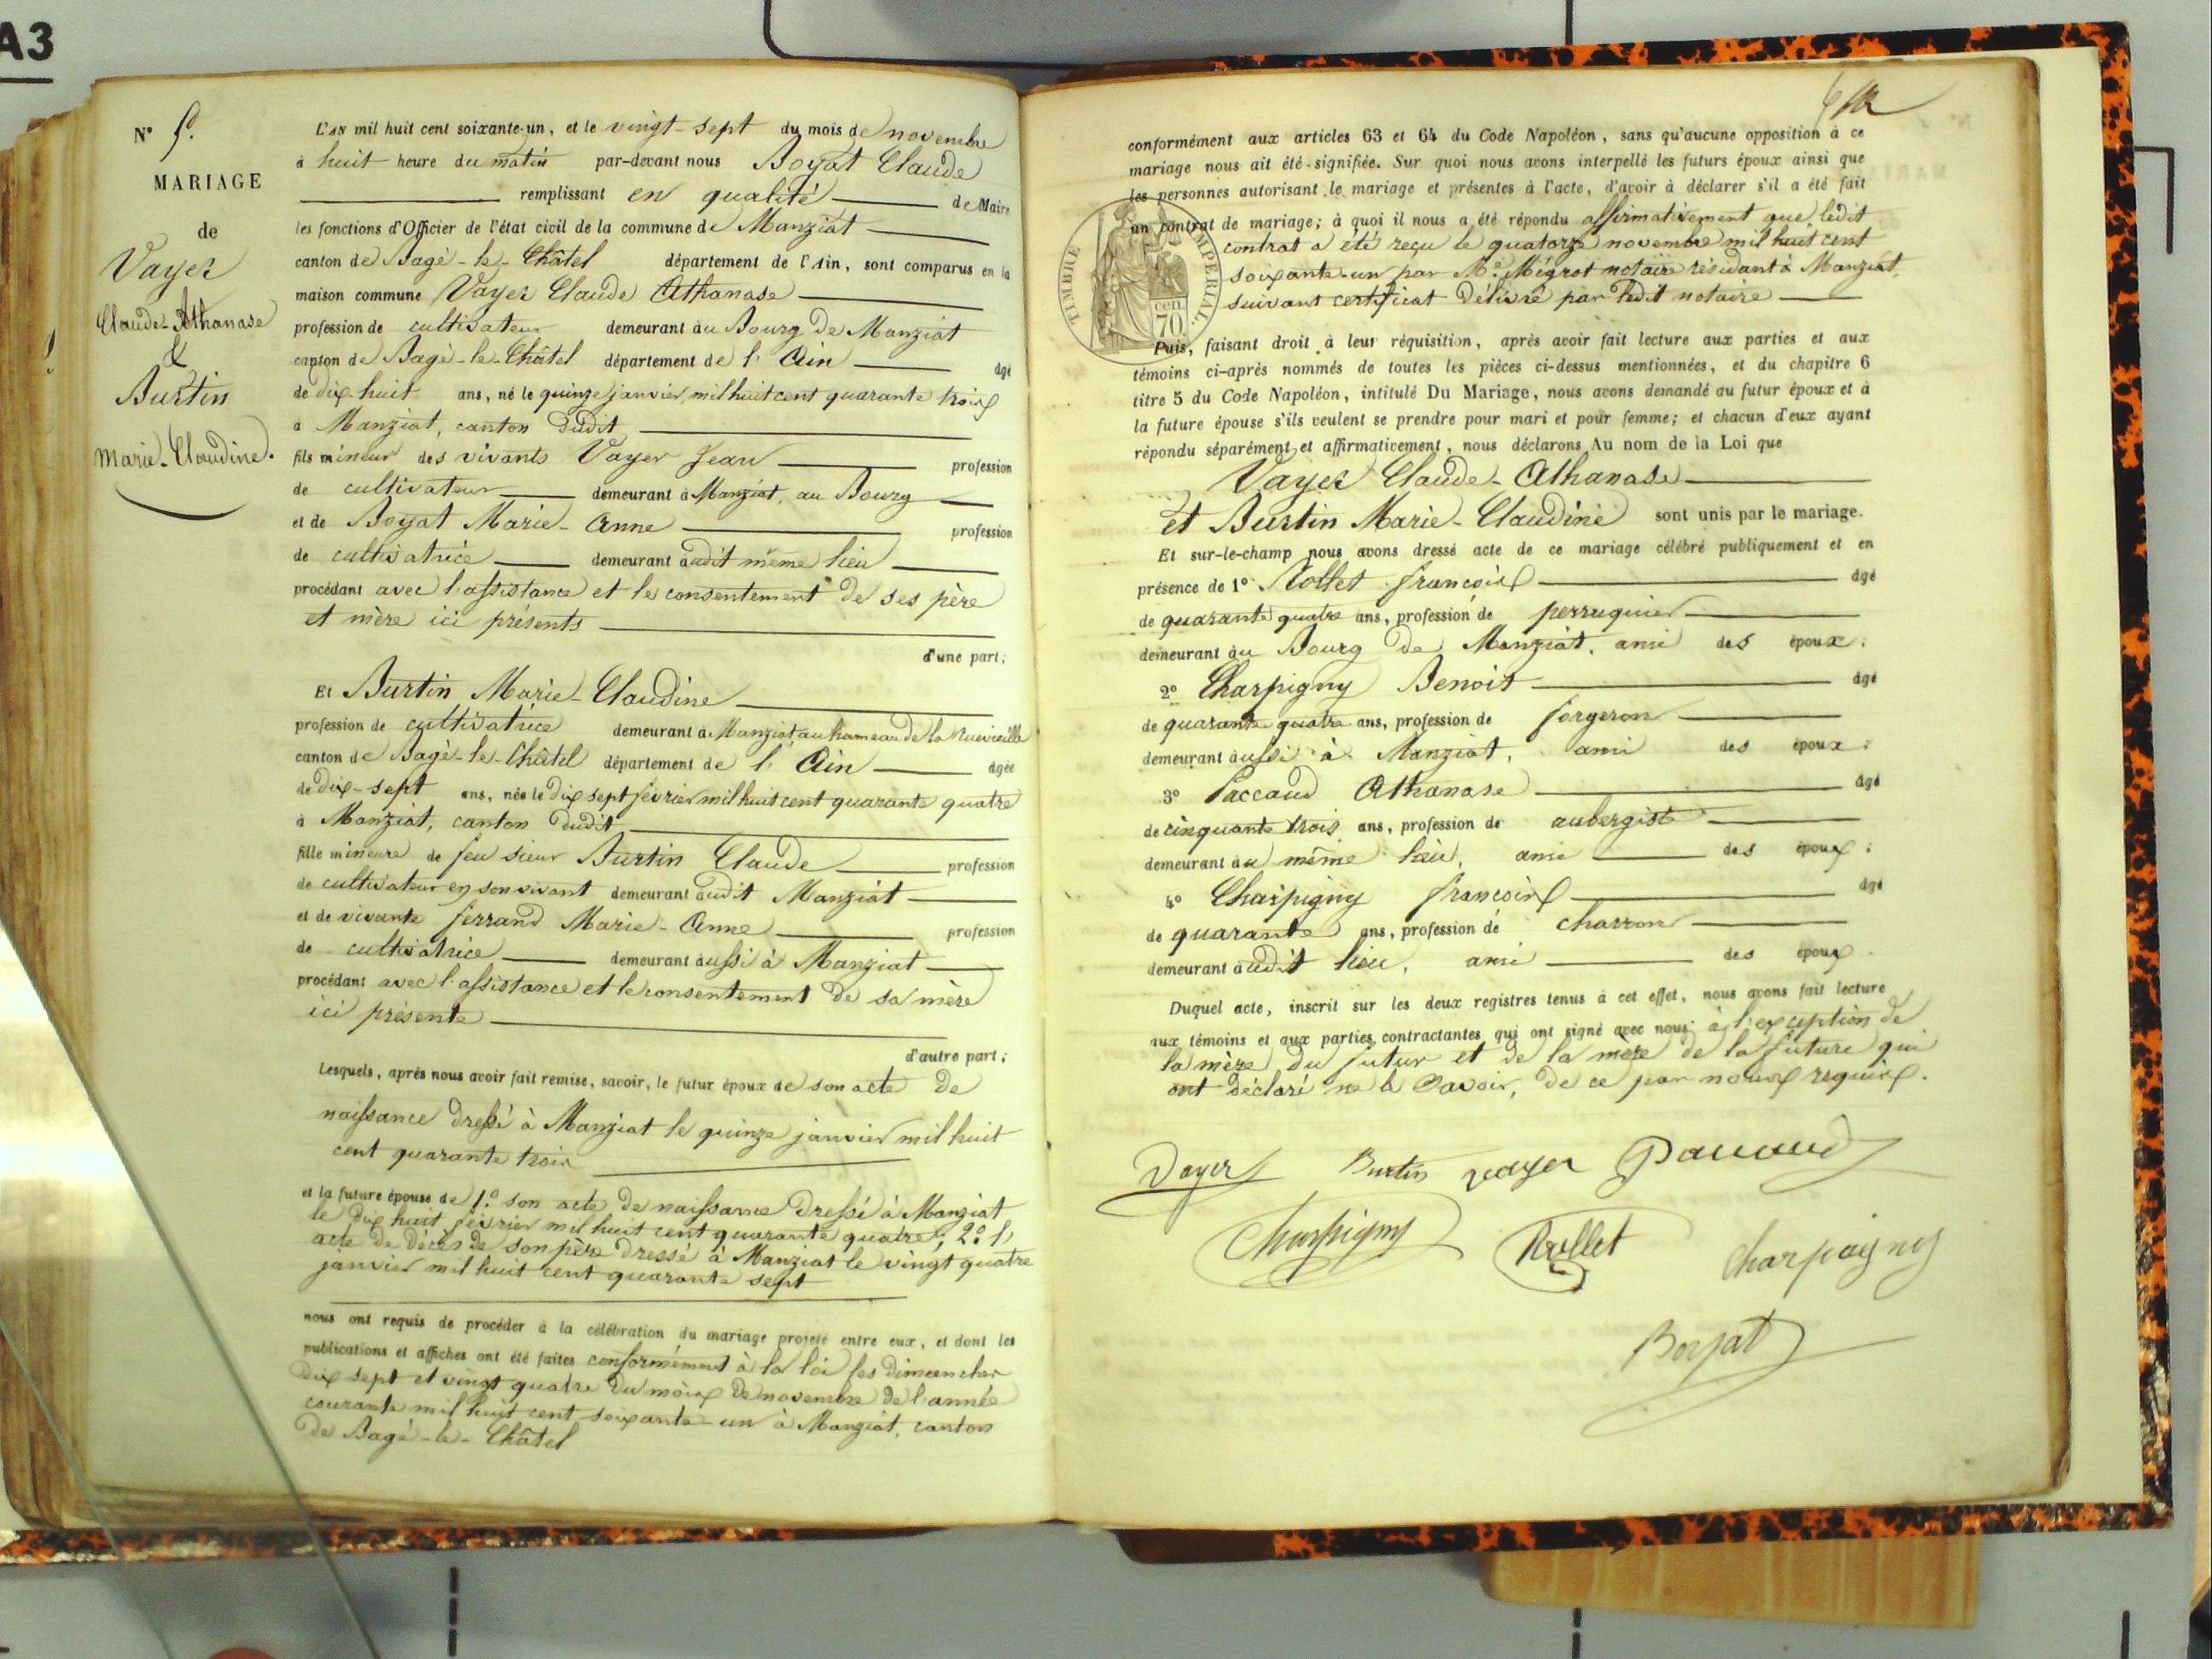 A3
N° 5.
MARIAGE
de
Vayer
Claude-Athanase
&
Burtin
Marie-Claudine.
L'an mil huit cent soixante-un, et le vingt-sept du mois de novembre
à huit heure du matin par-devant nous Boyat Claude
remplissant en qualité de Maire
les fonctions d'Officier de l'état civil de la commune de Manziat
canton de Bagé-le-Châtel département de l'Ain, sont comparus en la
maison commune Vayer Claude Athanase
profession de cultivateur demeurant au Bourg de Manziat
canton de Bagé-le-Châtel département de l'Ain âgé
de dix-huit ans, né le quinze janvier mil huit cent quarante trois
à Manziat, canton dudit
fils mineur des vivants Vayer Jean profession
de cultivateur demeurant à Manziat, au Bourg
et de Boyat Marie-Anne profession
de cultivatrice demeurant audit même lieu
procédant avec l'assistance et le consentement de ses père
et mère ici présents
d'une part;
Et Burtin Marie-Claudine
profession de cultivatrice demeurant à Manziat au hameau de la
canton de Bagé-le-Châtel département de l'Ain âgée
de dix-sept ans, née le dix sept février mil huit cent quarante quatre
à Manziat, canton dudit
fille mineure de feu sieur Burtin Claude profession
de cultivateur en son vivant demeurant audit Manziat
et de vivante ferrand Marie-Anne profession
de cultivatrice demeurant aussi à Manziat
procédant avec l'assistance et le consentement de sa mère
ici présente
d'autre part;
Lesquels, après nous avoir fait remise, savoir, le futur époux de son acte de
naissance dressé à Manziat le quinze janvier mil huit
cent quarante trois
et la future épouse de 1.° son acte de naissance dressé à Manziat
le dix huit février mil huit cent quarante quatre; 2.° l'
acte de décès de son père dressé à Manziat le vingt quatre
janvier mil huit cent quarante sept
nous ont requis de procéder à la célébration du mariage projeté entre eux, et dont les
publications et affiches ont été faites conformément à la loi les dimanches
dix sept et vingt quatre du mois de novembre de l'année
courante mil huit cent soixante-un à Manziat, canton
de Bagé-le-Châtel
conformément aux articles 63 et 64 du Code Napoléon, sans qu'aucune opposition à ce
mariage nous ait été signifiée. Sur quoi nous avons interpellé les futurs époux ainsi que
les personnes autorisant le mariage et présentes à l'acte, d'avoir à déclarer s'il a été fait
un contrat de mariage; à quoi il nous a été répondu affirmativement que ledit
contrat a été reçu le quatorze novembre mil huit cent
soixante-un par M.e Mégrot notaire résidant à Manziat,
suivant certificat délivré par ledit notaire
TIMBRE IMPERIAL.
cen.
70
Puis, faisant droit à leur réquisition, après avoir fait lecture aux parties et aux
témoins ci-après nommés de toutes les pièces ci-dessus mentionnées, et du chapitre 6
titre 5 du Code Napoléon, intitulé Du Mariage, nous avons demandé au futur époux et à
la future épouse s'ils veulent se prendre pour mari et pour femme; et chacun d'eux ayant
répondu séparément et affirmativement, nous déclarons Au nom de la Loi que
Vayer Claude-Athanase
et Burtin Marie-Claudine sont unis par le mariage.
Et sur-le-champ nous avons dressé acte de ce mariage célébré publiquement et en
présence de 1° Rollet françois âgé
de quarante quatre ans, profession de perruquier
demeurant au Bourg de Manziat, ami des époux;
2° Charpigny Benoit âgé
de quarante quatre ans, profession de forgeron
demeurant aussi à Manziat, ami des époux;
3° Paccaud Athanase âgé
de cinquante trois ans, profession de aubergiste
demeurant au même lieu, ami des époux;
4° Charpigny françois âgé
de quarante ans, profession de charron
demeurant audit lieu, ami des époux
Duquel acte, inscrit sur les deux registres tenus à cet effet, nous avons fait lecture
aux témoins et aux parties contractantes qui ont signé avec nous à l'exception de
la mère du futur et de la mère de la future qui
ont déclaré ne le savoir, de ce par nous requis.
Vayer Burtin vayer Paccaud
Charpigny Rollet Charpigny
Boyat